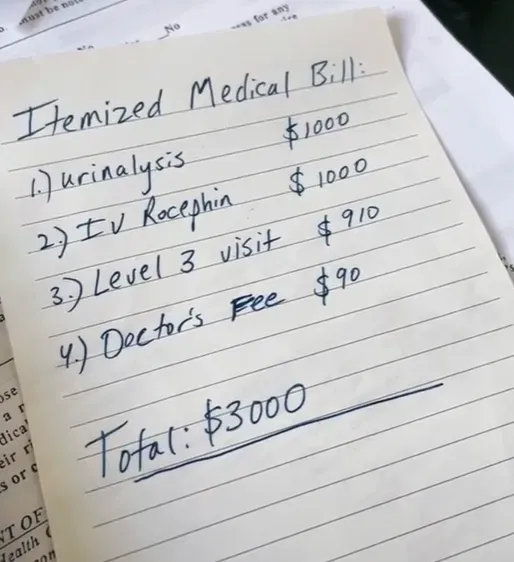 must be no
No
ons for any
Itemized Medical Bill:
1.) urinalysis $1000
2) IV Rocephin $1000
3.) Level 3 visit $910
4.) Doctor's Fee $90
Total: $3000
ose
a
dica
eir
s or
NT OF
Health